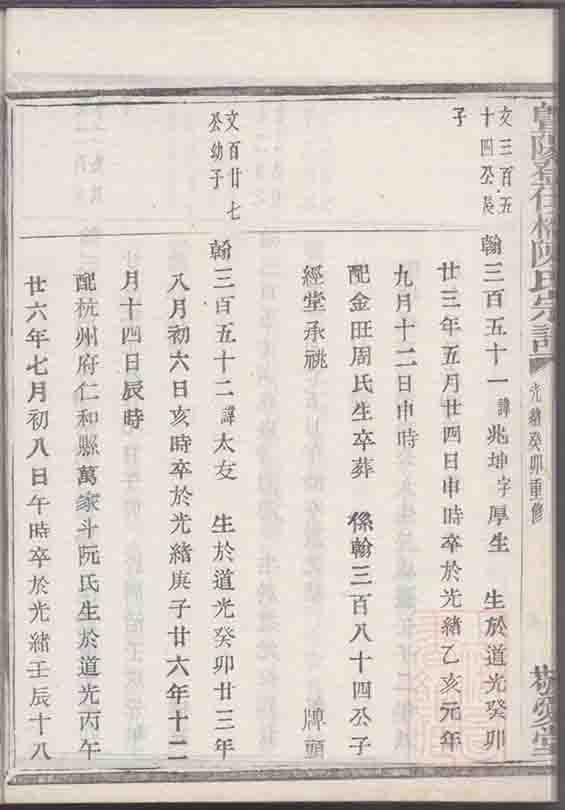 光緒癸卯重修
文三百五
十四公長
子
翰三百五十一諱兆坤字厚生　生於道光癸卯
廿三年五月廿四日申時卒於光緒乙亥元年
九月十二日申時
配金旺周氏生卒葬　係翰三百八十四公子
經堂承祧　牌頭
文百廿七
公幼子
翰三百五十二諱太友　生於道光癸卯廿三年
八月初六日亥時卒於光緒庚子廿六年十二
月十四日辰時
配杭州府仁和縣萬家斗阮氏生於道光丙午
廿六年七月初八日午時卒於光緒壬辰十八